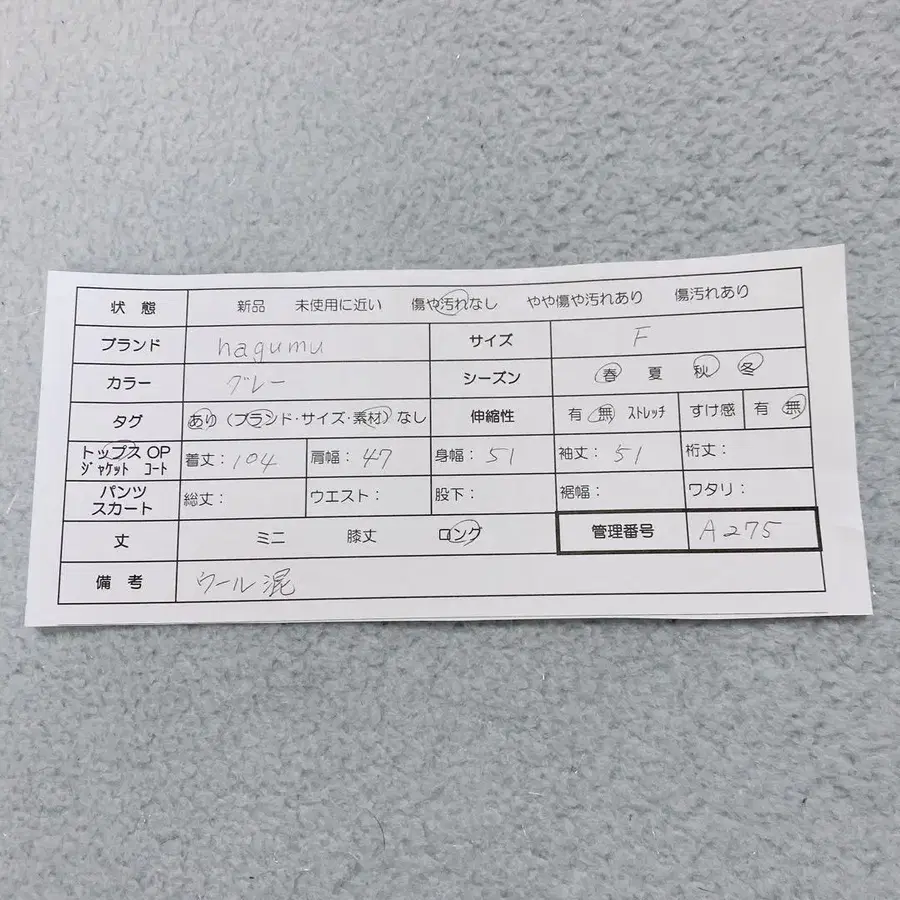 状態 新品 未使用に近い 傷や汚れなし やや傷や汚れあり 傷汚れあり
ブランド hagumu サイズ F
カラー グレー シーズン 春 夏 秋 冬
タグ あり(ブランド・サイズ・素材)なし 伸縮性 有 無 ストレッチ すけ感 有 無
トップス OP
ジャケット コート 着丈:104 肩幅:47 身幅:51 袖丈:51 裄丈:
パンツ
スカート 総丈: ウエスト: 股下: 裾幅: ワタリ:
丈 ミニ 膝丈 ロング 管理番号 A275
備考 ウール混